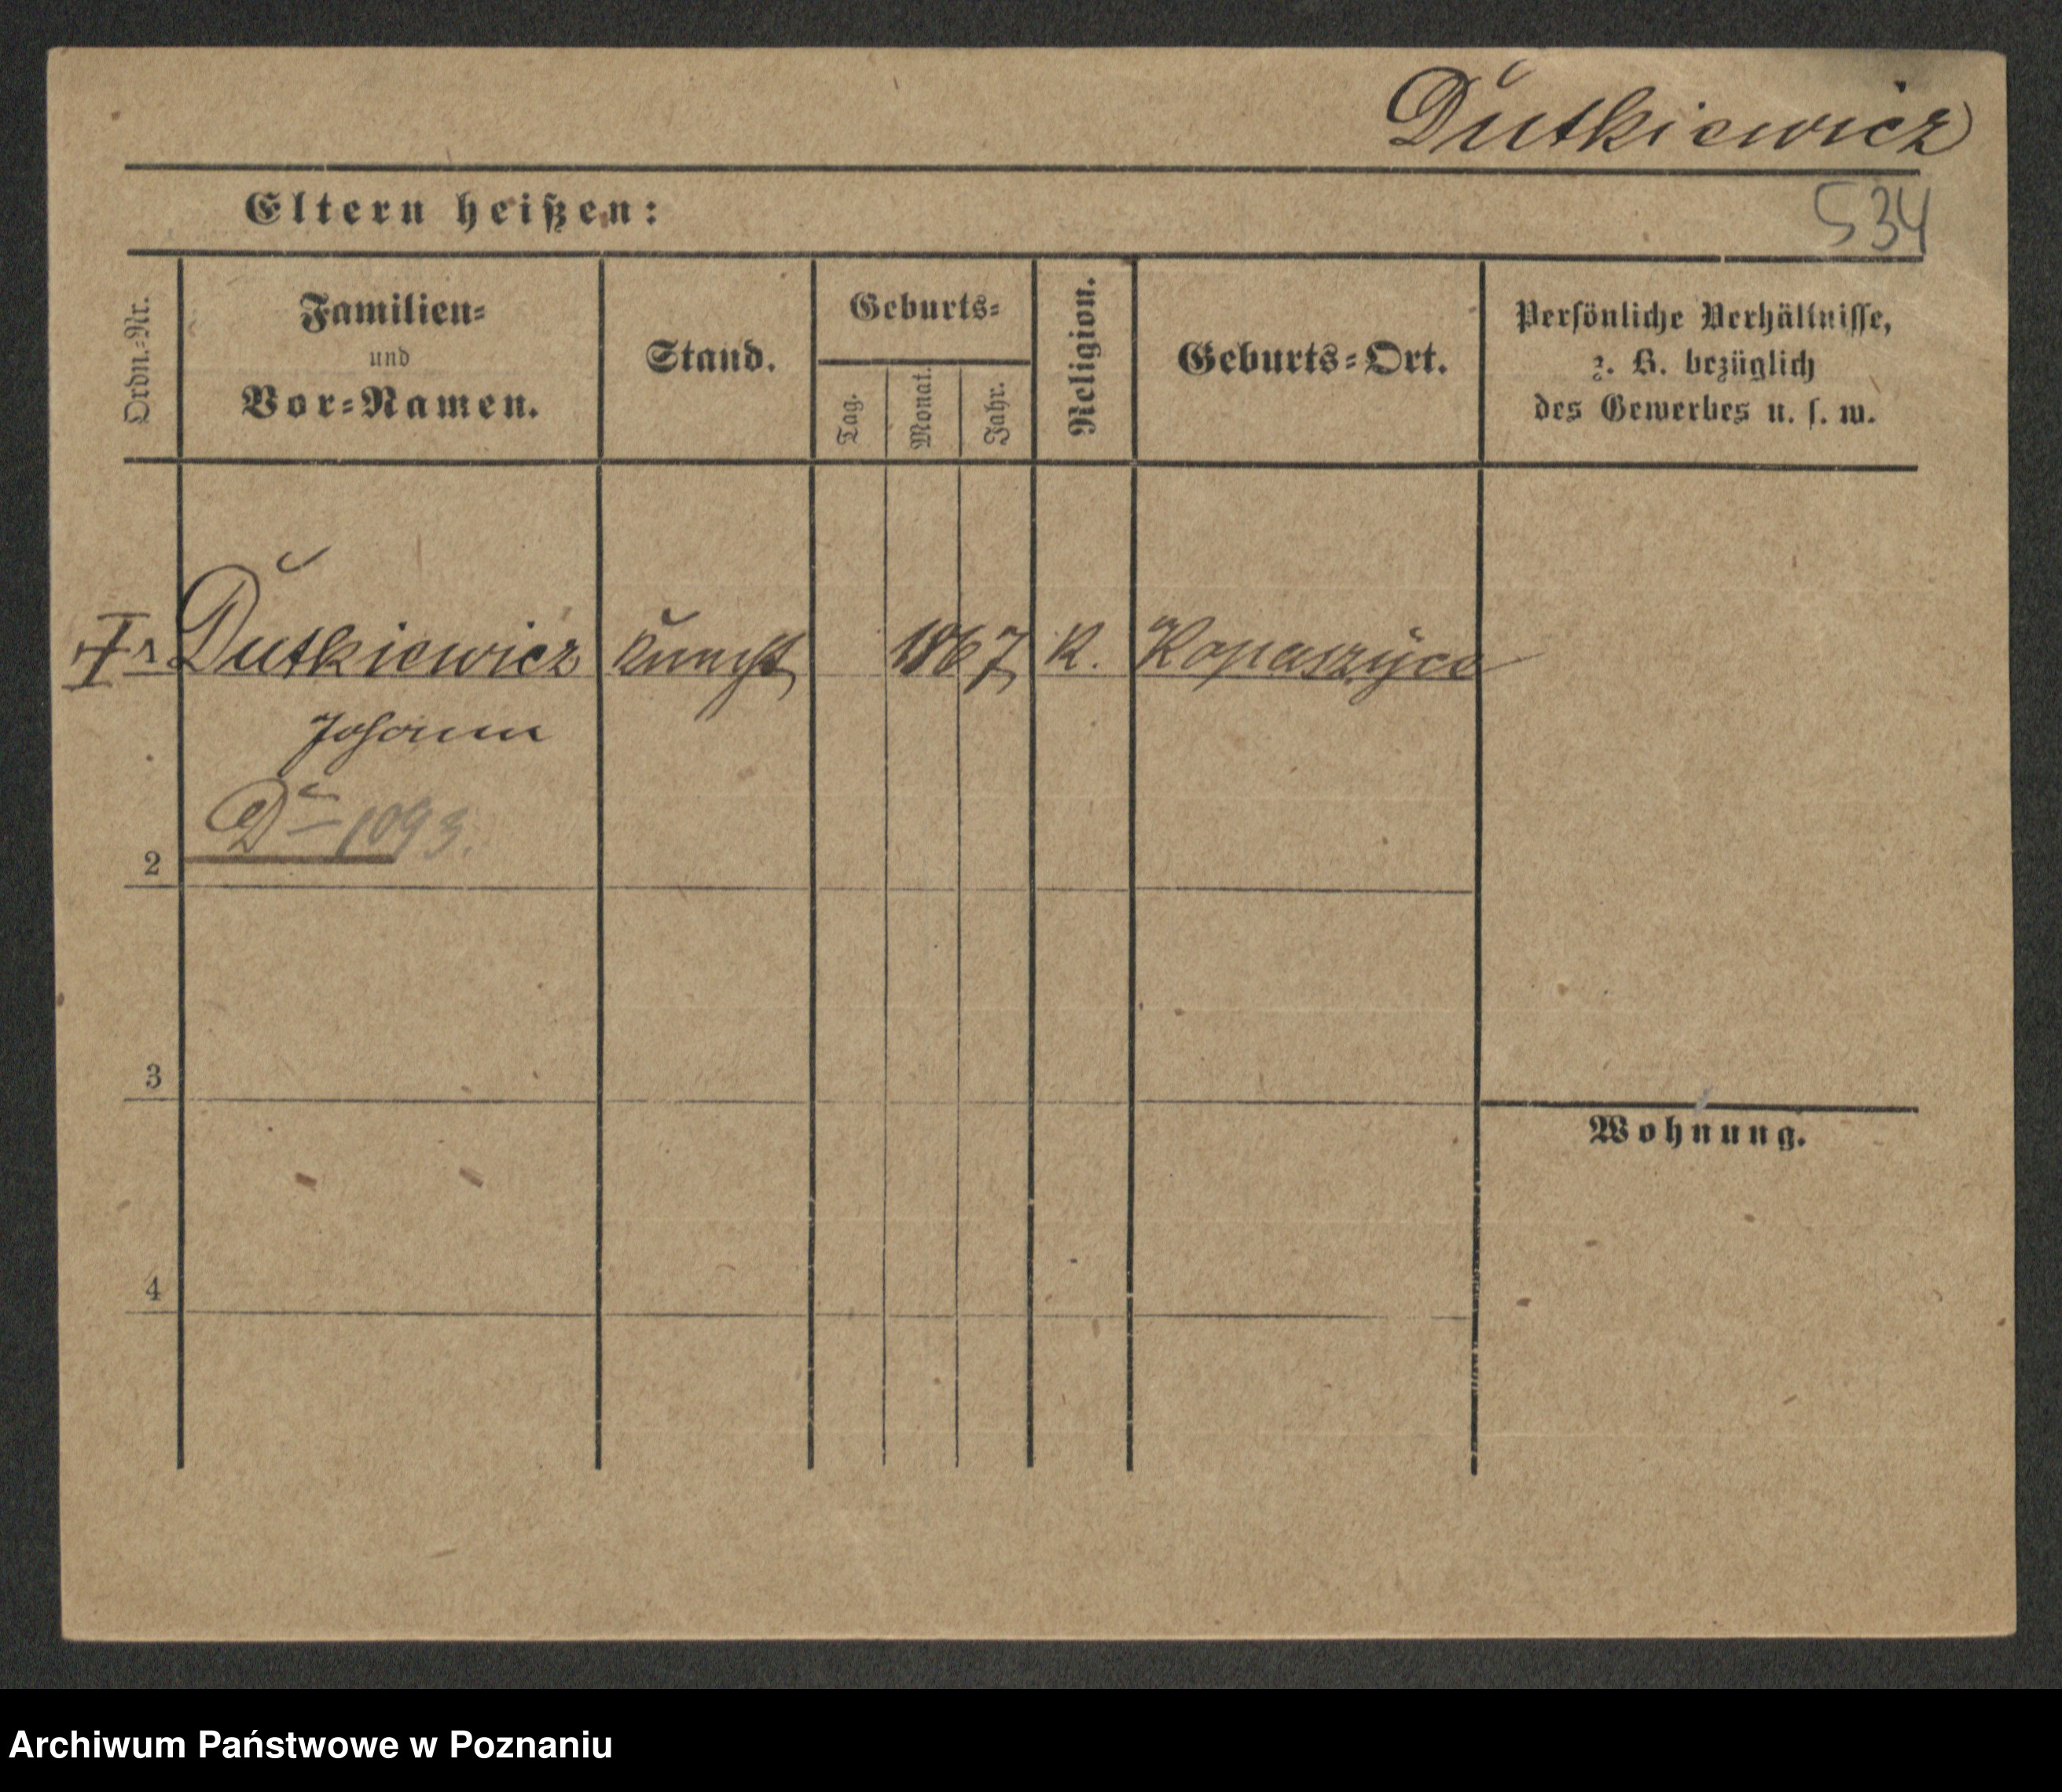 Dutkiewicz
Eltern heißen:
534
Ordn.-Nr.
Familien-
und
Vor-Namen.
Stand.
Geburts-
Tag.
Monat.
Jahr.
Religion.
Geburts-Ort.
Persönliche Verhältnisse,
z. B. bezüglich
des Gewerbes u. s. w.
1 Dutkiewicz Knecht 1867 K. Kopaszyce
Johann
D 1093.
2
3
Wohnung.
4
Archiwum Państwowe w Poznaniu